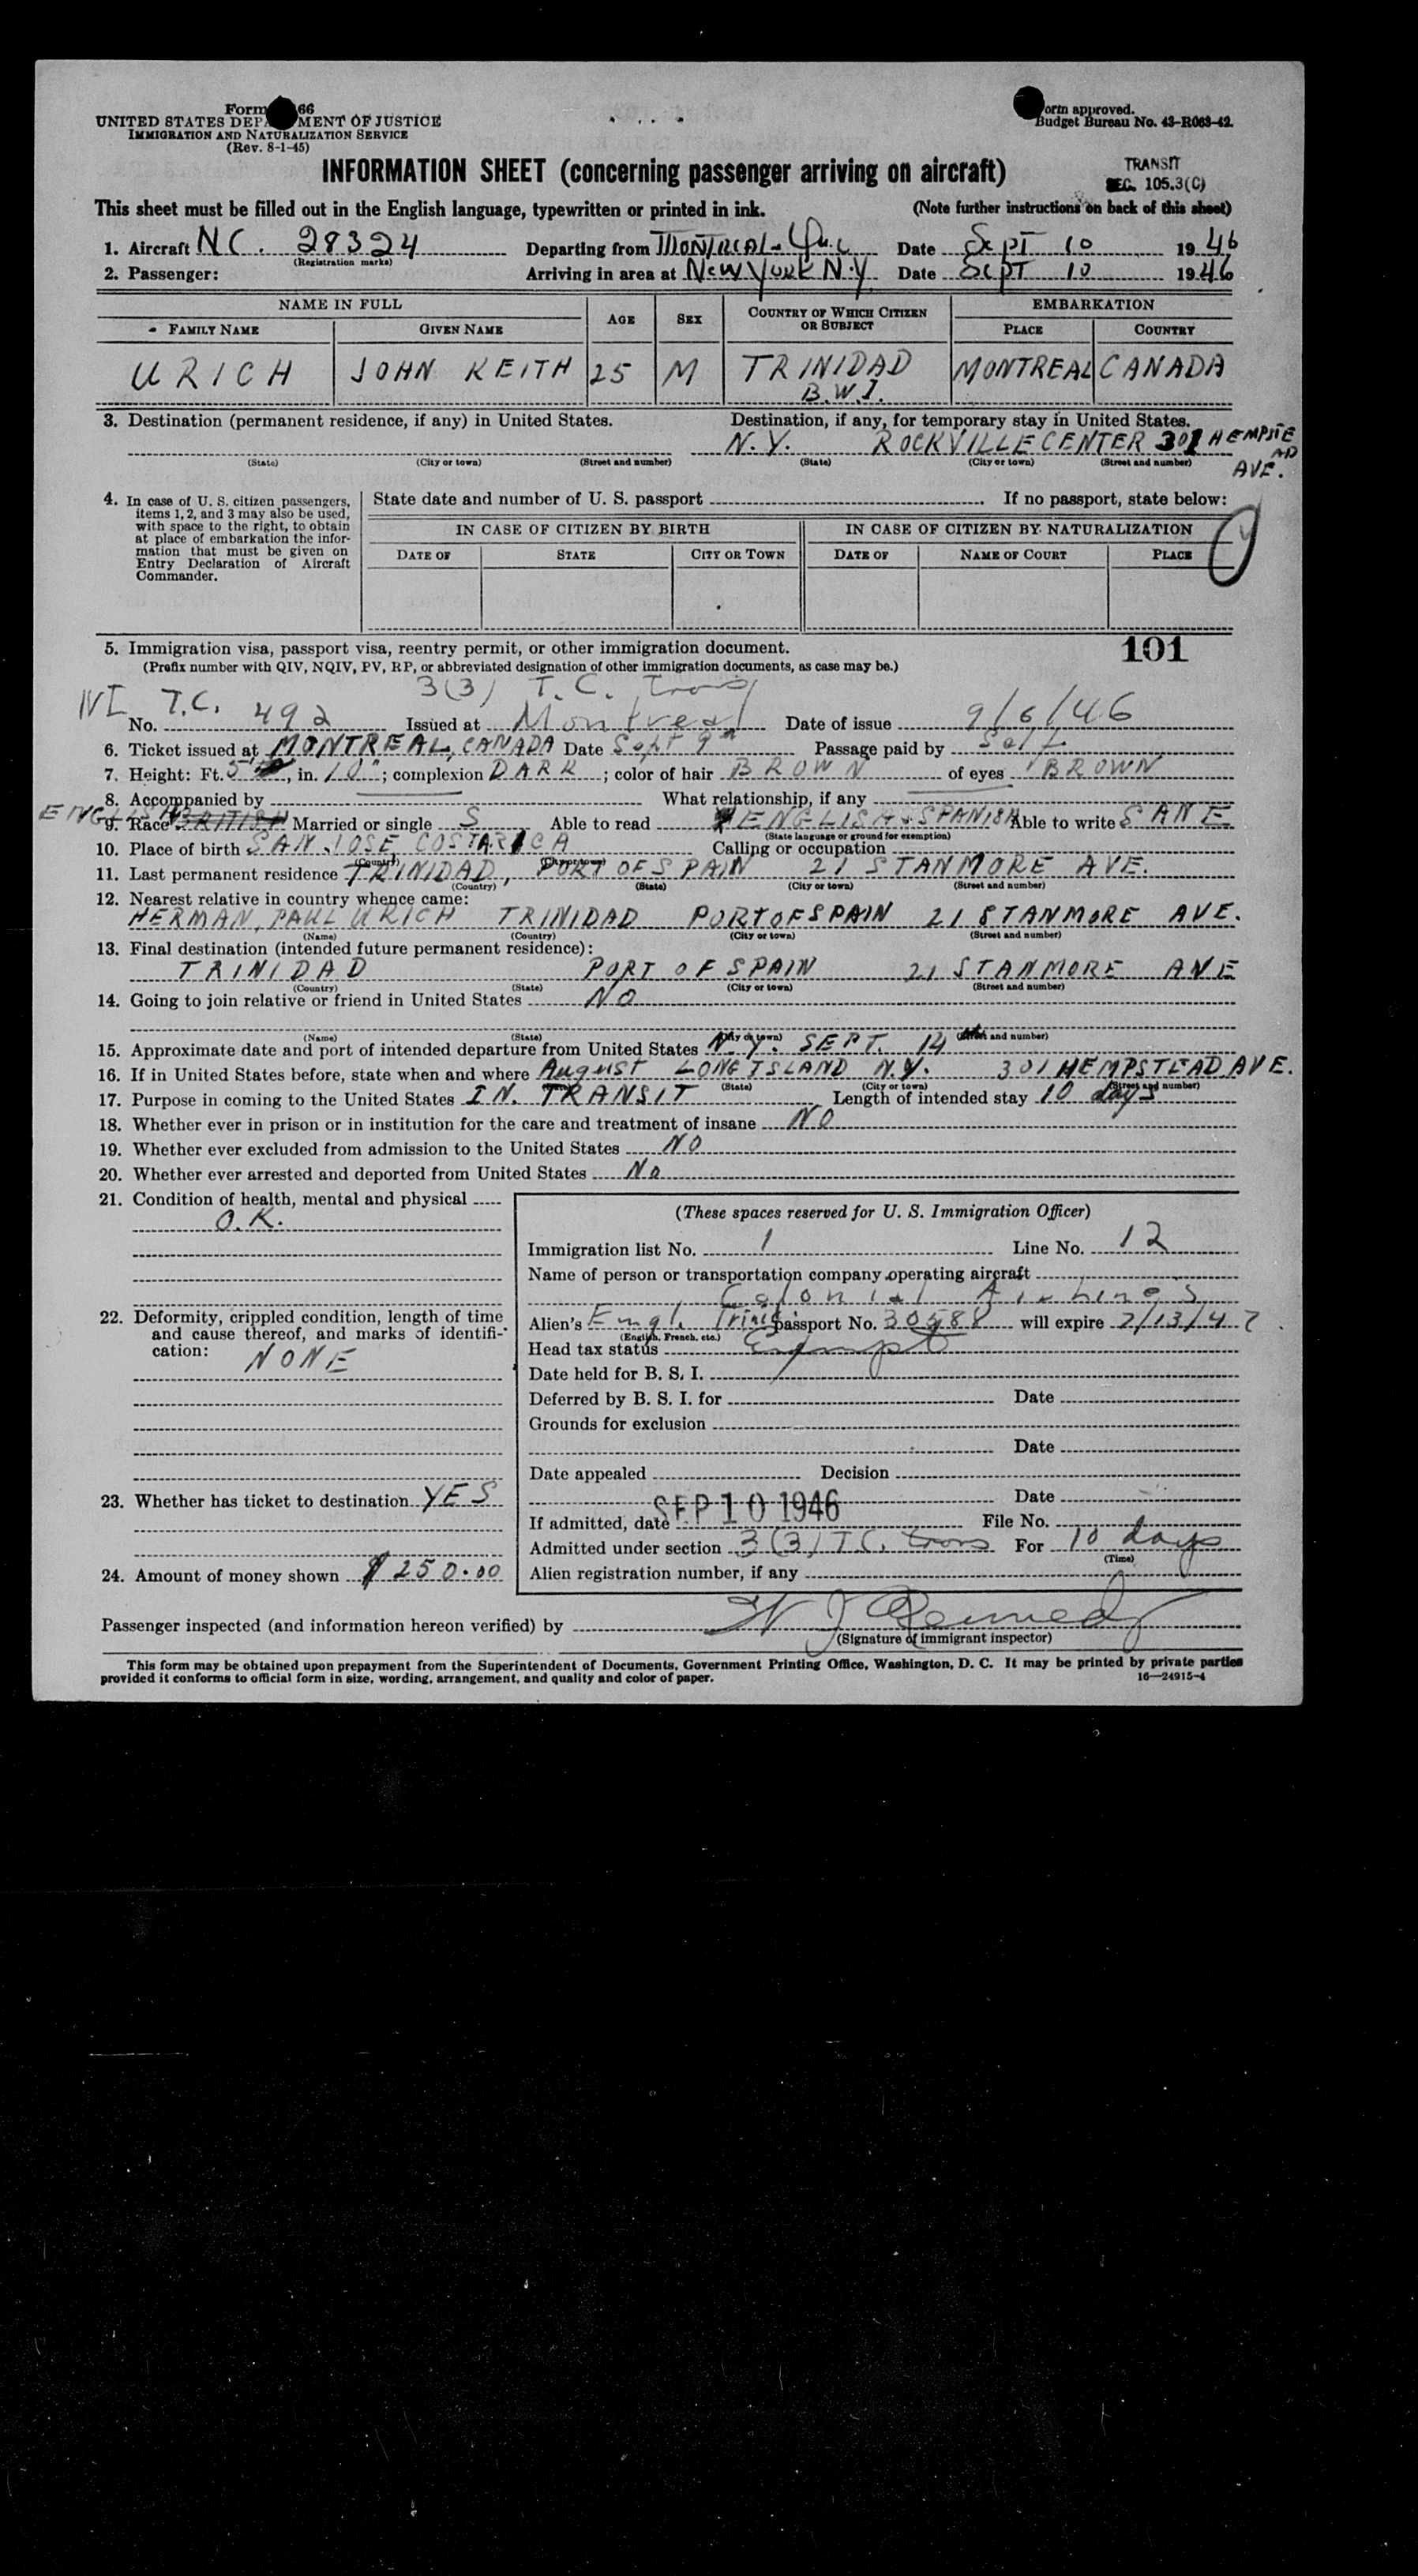 Form 66
UNITED STATES DEPA MENT OF JUSTICE
IMMIGRATION AND NATURALIZATION SERVICE
(Rev. 8-1-45)
orm approved.
Budget Bureau No. 43-R063-42.
INFORMATION SHEET (concerning passenger arriving on aircraft)
TRANSIT
SEC. 105.3(C)
This sheet must be filled out in the English language, typewritten or printed in ink. (Note further instructions on back of this sheet)
1. Aircraft NC. 28324 Departing from MONTREAL - Que Date Sept 10 1946
(Registration marks)
2. Passenger: Arriving in area at New York N.Y. Date Sept 10 1946
NAME IN FULL AGE SEX COUNTRY OF WHICH CITIZEN OR SUBJECT EMBARKATION
FAMILY NAME GIVEN NAME PLACE COUNTRY
URICH JOHN KEITH 25 M TRINIDAD MONTREAL CANADA
B.W.I.
3. Destination (permanent residence, if any) in United States. Destination, if any, for temporary stay in United States.
N.Y. ROCKVILLE CENTER 301 HEMPSTE
AD
AVE.
(State) (City or town) (Street and number) (State) (City or town) (Street and number)
4. In case of U. S. citizen passengers, items 1, 2, and 3 may also be used, with space to the right, to obtain at place of embarkation the information that must be given on Entry Declaration of Aircraft Commander.
State date and number of U. S. passport If no passport, state below:
IN CASE OF CITIZEN BY BIRTH IN CASE OF CITIZEN BY NATURALIZATION
DATE OF STATE CITY OR TOWN DATE OF NAME OF COURT PLACE
5. Immigration visa, passport visa, reentry permit, or other immigration document. 101
(Prefix number with QIV, NQIV, PV, RP, or abbreviated designation of other immigration documents, as case may be.)
3(3) T.C. trans
NI T.C.
No. 492 Issued at Montreal Date of issue 9/6/46
6. Ticket issued at MONTREAL, CANADA Date Sept 9th Passage paid by Self
7. Height: Ft. 5, in. 10"; complexion DARK; color of hair BROWN of eyes BROWN
8. Accompanied by What relationship, if any
ENGLISH
9. Race BRITISH Married or single S Able to read ENGLISH & SPANISH Able to write SAME
(State language or ground for exemption)
10. Place of birth SAN JOSE, COSTA RICA Calling or occupation
(Country) (City or town)
11. Last permanent residence TRINIDAD, PORT OF SPAIN 21 STANMORE AVE.
(Country) (State) (City or town) (Street and number)
12. Nearest relative in country whence came:
HERMAN, PAUL URICH TRINIDAD PORT OF SPAIN 21 STANMORE AVE.
(Name) (Country) (City or town) (Street and number)
13. Final destination (intended future permanent residence):
TRINIDAD PORT OF SPAIN 21 STANMORE AVE
(Country) (State) (City or town) (Street and number)
14. Going to join relative or friend in United States NO
(Name) (State) (City or town) (Street and number)
15. Approximate date and port of intended departure from United States N.Y. SEPT. 14
16. If in United States before, state when and where August LONG ISLAND N.Y. 301 HEMPSTEAD AVE.
(State) (City or town) (Street and number)
17. Purpose in coming to the United States IN TRANSIT Length of intended stay 10 days
18. Whether ever in prison or in institution for the care and treatment of insane NO
19. Whether ever excluded from admission to the United States NO
20. Whether ever arrested and deported from United States No
21. Condition of health, mental and physical
O.K.
22. Deformity, crippled condition, length of time and cause thereof, and marks of identification:
NONE
23. Whether has ticket to destination YES
24. Amount of money shown $250.00
(These spaces reserved for U. S. Immigration Officer)
Immigration list No. 1 Line No. 12
Name of person or transportation company operating aircraft
Colonial Airlines
Alien's Engl. Trinid passport No. 30588 will expire 2/13/47
(English, French, etc.)
Head tax status Exempt
Date held for B. S. I.
Deferred by B. S. I. for Date
Grounds for exclusion
Date
Date appealed Decision
Date
If admitted, date SEP 10 1946 File No.
Admitted under section 3(3) TC. trans For 10 days
(Time)
Alien registration number, if any
Passenger inspected (and information hereon verified) by W J Kennedy
(Signature of immigrant inspector)
This form may be obtained upon prepayment from the Superintendent of Documents, Government Printing Office, Washington, D. C. It may be printed by private parties
provided it conforms to official form in size, wording, arrangement, and quality and color of paper. 16—24915-4